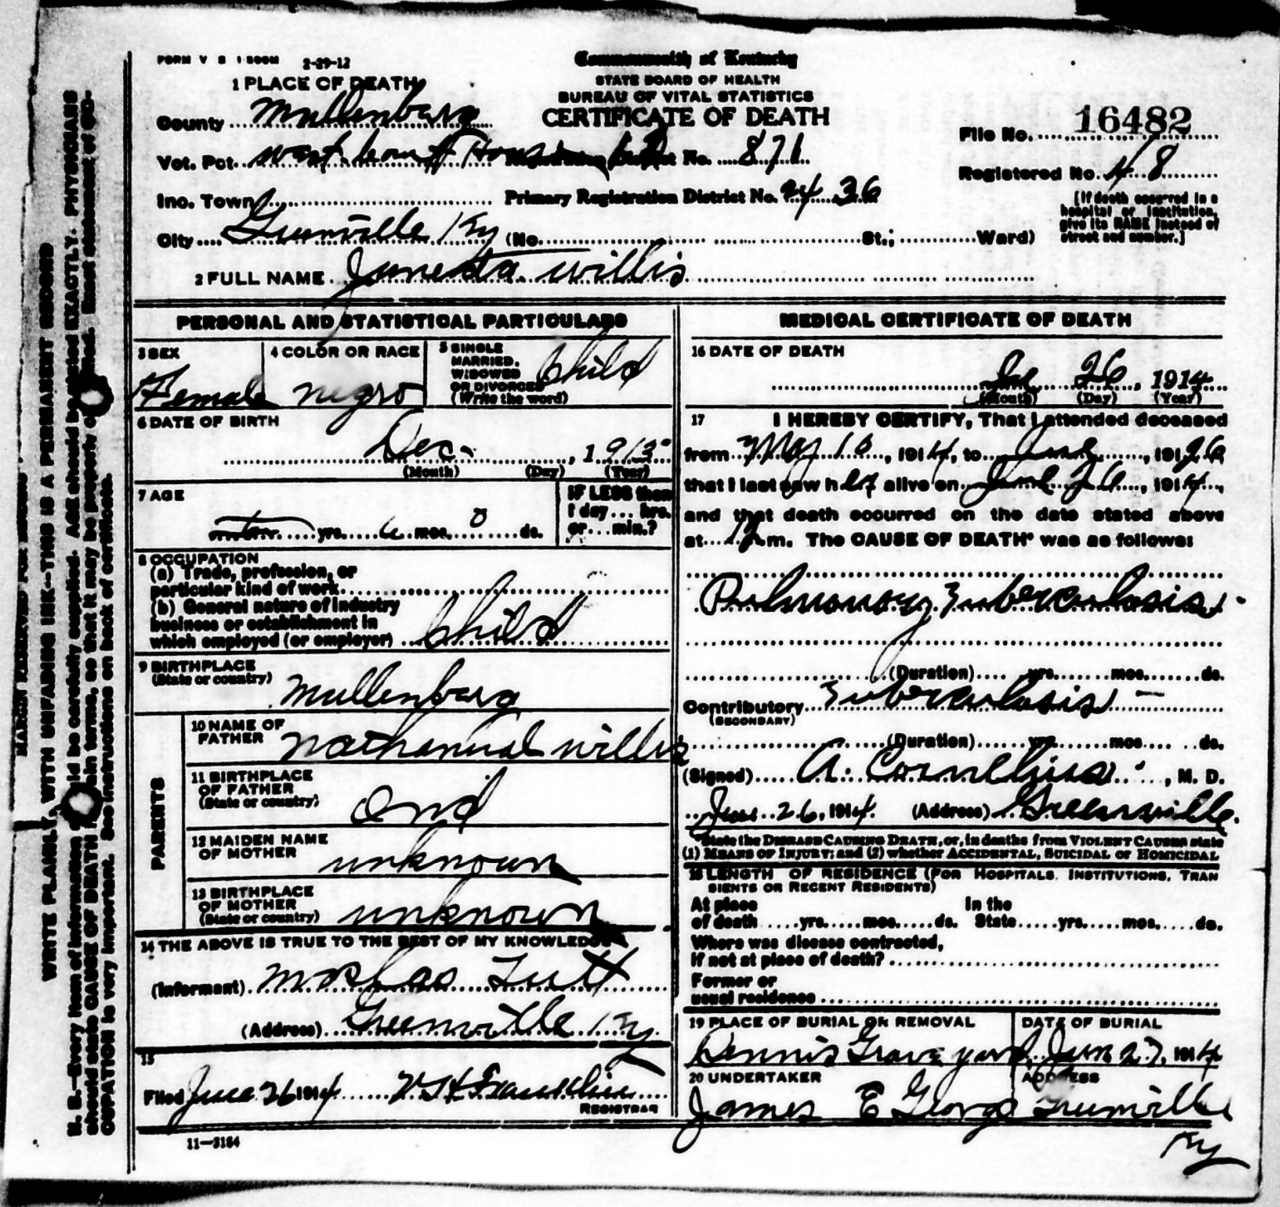 FORM V S 1 500M 2-29-12
Commonwealth of Kentucky
STATE BOARD OF HEALTH
BUREAU OF VITAL STATISTICS
CERTIFICATE OF DEATH
1 PLACE OF DEATH
County Mullenburg
Vot. Pct west Court House No. 871
Inc. Town Primary Registration District No. 2436
City Grenville Ky (No. St.; Ward)
File No. 16482
Registered No. 48
[If death occurred in a
hospital or institution,
give its NAME instead of
street and number.]
2 FULL NAME Junesta willis
PERSONAL AND STATISTICAL PARTICULARS
3 SEX
Female
4 COLOR OR RACE
negro
5 SINGLE
MARRIED,
WIDOWED
OR DIVORCED
(Write the word)
Child
6 DATE OF BIRTH
Dec. , 1913
(Month) (Day) (Year)
7 AGE
yrs. 6 mos. 0 ds.
IF LESS than
1 day... hrs.
or... min.?
8 OCCUPATION
(a) Trade, profession, or
particular kind of work
(b) General nature of industry
business or establishment in
which employed (or employer) Child
9 BIRTHPLACE
(State or country)
Mullenburg
PARENTS
10 NAME OF
FATHER
Nathanial willis
11 BIRTHPLACE
OF FATHER
(State or country)
12 MAIDEN NAME
OF MOTHER
unknown
13 BIRTHPLACE
OF MOTHER
(State or country)
unknown
14 THE ABOVE IS TRUE TO THE BEST OF MY KNOWLEDGE
(Informant) Tutt
(Address) Greenville Ky
15
Filed June 26 1914 Franklin
REGISTRAR
11-3184
MEDICAL CERTIFICATE OF DEATH
16 DATE OF DEATH
June 26, 1914
(Month) (Day) (Year)
17 I HEREBY CERTIFY, That I attended deceased
from May 10, 1914, to June, 191 26
that I last saw her alive on June 26, 1914,
and that death occurred on the date stated above
at 12 m. The CAUSE OF DEATH* was as follows:
Pulmonory Tuberculosis.
(Duration) yrs. mos. ds.
Contributory Tuberculosis
(SECONDARY)
(Duration) yrs. mos. ds.
(Signed) A. Cornelius, M. D.
June 26, 1914 (Address) Greenville.
*State the DISEASE CAUSING DEATH, or, in deaths from VIOLENT CAUSES state
(1) MEANS OF INJURY; and (2) whether ACCIDENTAL, SUICIDAL OR HOMICIDAL
18 LENGTH OF RESIDENCE (FOR HOSPITALS, INSTITUTIONS, TRAN
SIENTS OR RECENT RESIDENTS)
At place In the
of death yrs. mos. ds. State yrs. mos. ds.
Where was disease contracted,
if not at place of death?
Former or
usual residence
19 PLACE OF BURIAL OR REMOVAL
Dennis Grave yard
DATE OF BURIAL
June 27, 1914
20 UNDERTAKER
James E George
ADDRESS
Grenville
Ky
MARGIN RESERVED FOR BINDING
WRITE PLAINLY, WITH UNFADING INK—THIS IS A PERMANENT RECORD
N. B.—Every item of information should be carefully supplied. AGE should be stated EXACTLY. PHYSICIANS
should state CAUSE OF DEATH in plain terms, so that it may be properly classified. Exact statement of OC-
CUPATION is very important. See instructions on back of certificate.